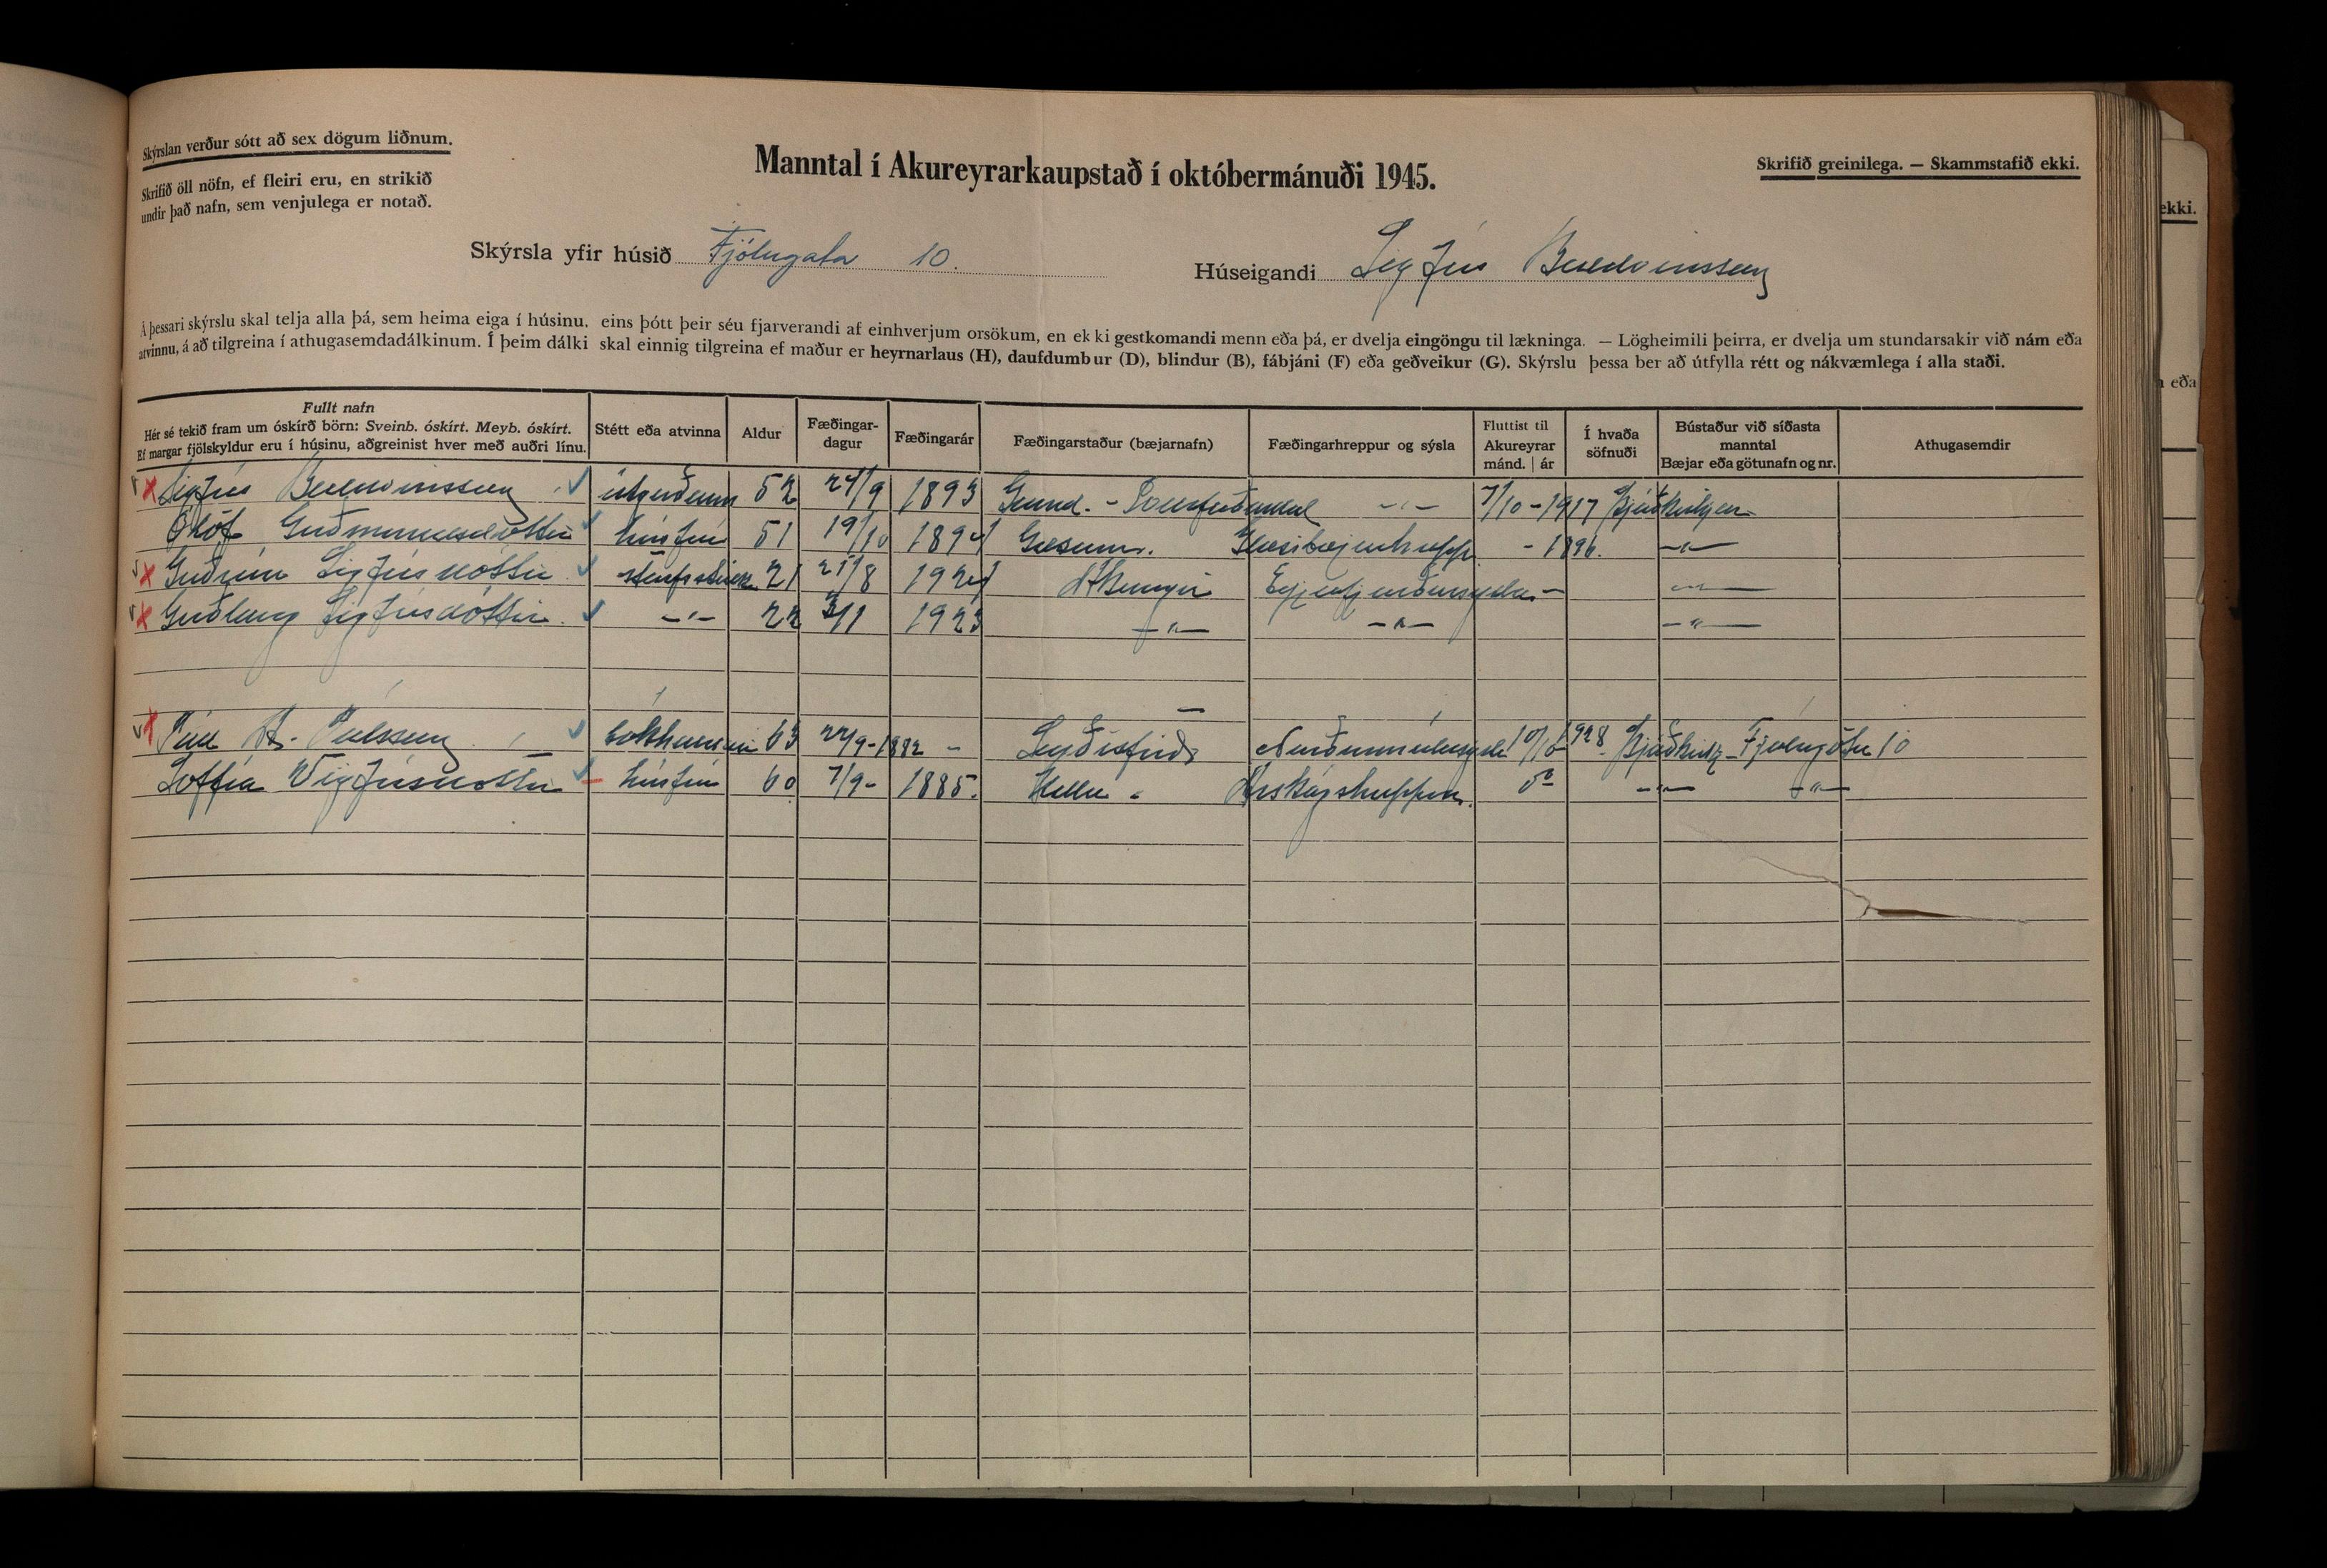 Skýrslan verður sótt að sex dögum liðnum.
Skrifið öll nöfn, ef fleiri eru, en strikið
undir það nafn, sem venjulega er notað.
Manntal í Akureyrarkaupstað í októbermánuði 1945.
Skrifið greinilega. — Skammstafið ekki.
ekki.
Skýrsla yfir húsið Fjólugata 10.
Húseigandi Sigfús Baldvinsson
Á þessari skýrslu skal telja alla þá, sem heima eiga í húsinu, eins þótt þeir séu fjarverandi af einhverjum orsökum, en ekki gestkomandi menn eða þá, er dvelja eingöngu til lækninga. — Lögheimili þeirra, er dvelja um stundarsakir við nám eða
atvinnu, á að tilgreina í athugasemdadálkinum. Í þeim dálki skal einnig tilgreina ef maður er heyrnarlaus (H), daufdumbur (D), blindur (B), fábjáni (F) eða geðveikur (G). Skýrslu þessa ber að útfylla rétt og nákvæmlega í alla staði.
eða
Fullt nafn
Hér sé tekið fram um óskírð börn: Sveinb. óskírt. Meyb. óskírt.
Ef margar fjölskyldur eru í húsinu, aðgreinist hver með auðri línu.
Stétt eða atvinna
Aldur
Fæðingar-
dagur
Fæðingarár
Fæðingarstaður (bæjarnafn)
Fæðingarhreppur og sýsla
Fluttist til
Akureyrar
mánd. | ár
Í hvaða
söfnuði
Bústaður við síðasta
manntal
Bæjar eða götunafn og nr.
Athugasemdir
Sigfús Baldvinsson útgerðarm 52 24/9 1893 Grund. - -"- 7/10 - 1917 Þjóðkirkjan
Ólöf Guðmundsdóttir húsfrú 51 19/10 1894 Gæsum. Glæsibæjarhrepp - 1896. -"-
Guðrún Sigfúsdóttir 21 21/8 1924 Akureyri Eyjafjarðarsýsla - -"-
Guðlaug Sigfúsdóttir -"- 22 3/1 1923 -"- -"- -"-
Páll A. Pálsson bókhaldari 63 24/9 - 1882 - Seyðisfirði Norðurmúlasýsla 10/10 1928 Þjóðkirkj - Fjólugötu 10
Soffía Vigfúsdóttir húsfrú 60 7/9 - 1885. Hellu - Árskógshreppur. -"- -"-